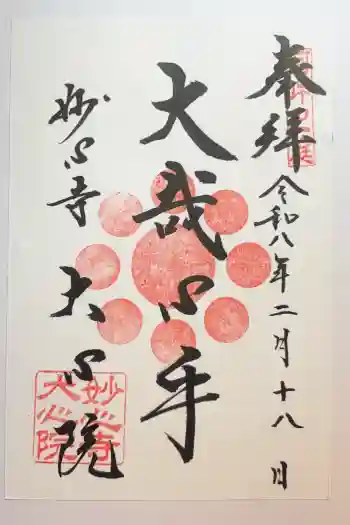 奉拝
令和八年二月十八日
大哉心手
妙心寺
大心院
妙心寺
大心院